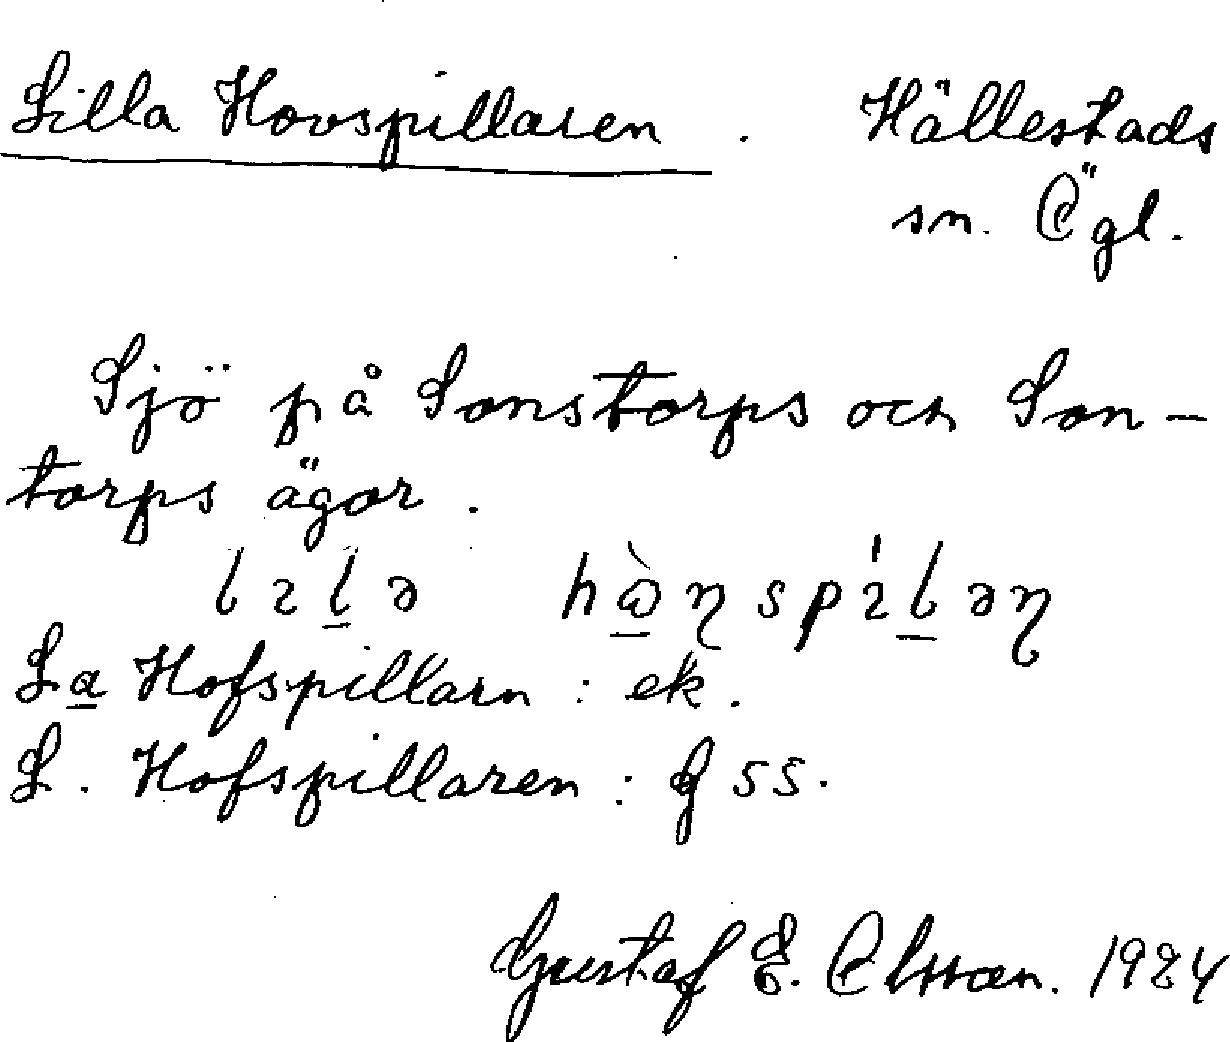 Lilla Hovspillaren. Hällestads
sn. Ögl.
Sjö på Sonstorps och Son-
torps ägor.
La Hofspillarn: ek.
L. Hofspillaren: gss.
Gustaf E. Olsson. 1924